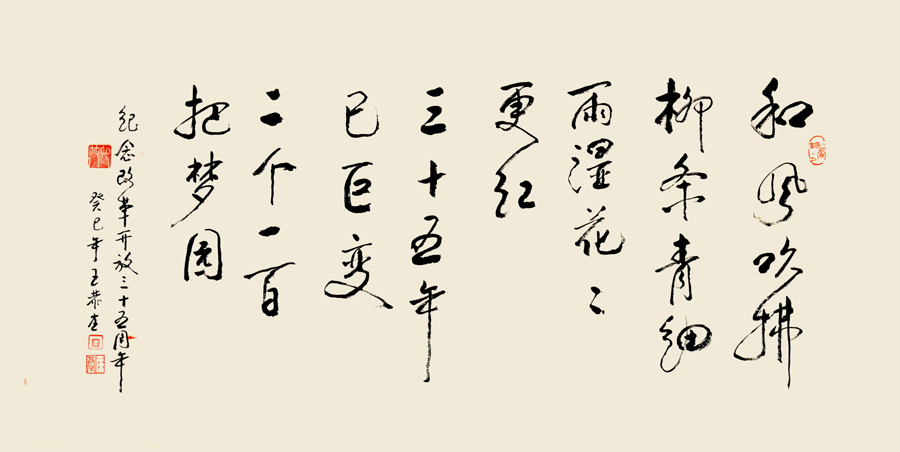 和风吹拂
柳条青细
雨湿花〻
更红
三十五年
已巨变
二个一百
把梦圆
纪念改革开放三十五周年
癸巳年王恭